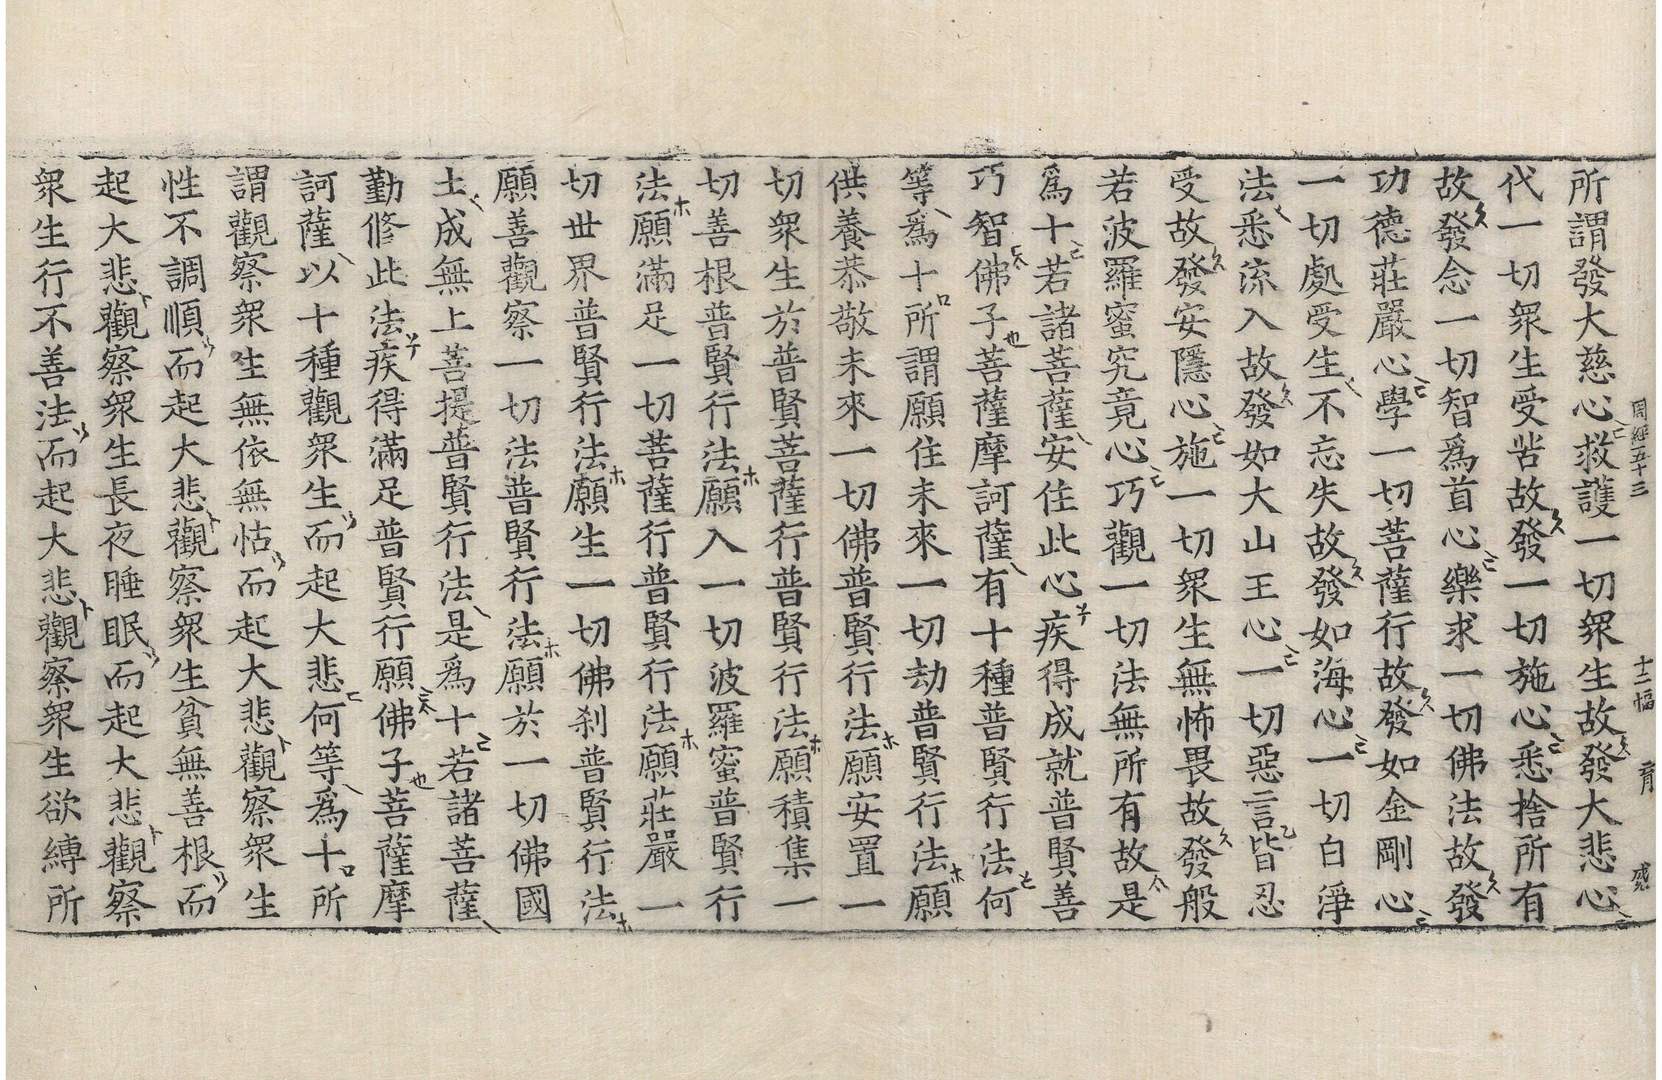 周經五十三 十二幅 育
所謂發大慈心救護一切衆生故發大悲心
代一切衆生受苦故發一切施心悉捨所有
故發念一切智爲首心樂求一切佛法故發
功德莊嚴心學一切菩薩行故發如金剛心
一切處受生不忘失故發如海心一切白淨
法悉流入故發如大山王心一切惡言皆忍
受故發安隱心施一切衆生無怖畏故發般
若波羅蜜究竟心巧觀一切法無所有故是
爲十若諸菩薩安住此心疾得成就普賢善
巧智佛子菩薩摩訶薩有十種普賢行法何
等爲十所謂願住未來一切劫普賢行法願
供養恭敬未來一切佛普賢行法願安置一
切衆生於普賢菩薩行普賢行法願積集一
切善根普賢行法願入一切波羅蜜普賢行
法願滿足一切菩薩行普賢行法願莊嚴一
切世界普賢行法願生一切佛刹普賢行法
願善觀察一切法普賢行法願於一切佛國
土成無上菩提普賢行法是爲十若諸菩薩
勤修此法疾得滿足普賢行願佛子菩薩摩
訶薩以十種觀衆生而起大悲何等爲十所
謂觀察衆生無依無怙而起大悲觀察衆生
性不調順而起大悲觀察衆生貧無善根而
起大悲觀察衆生長夜睡眠而起大悲觀察
衆生行不善法而起大悲觀察衆生欲縛所